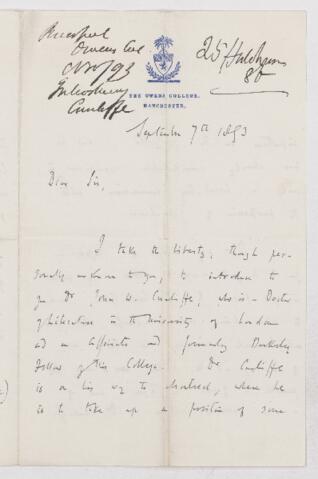 Principal
Owens Col.
7/9/93
Introducing
Cunliffe
THE OWENS COLLEGE,
MANCHESTER.
September 7th 1893
Dear Sir,
I take the liberty, though per-
sonally unknown to you, to introduce to
you Dr John W. Cunliffe, who is a Doctor
of Literature in the University of London
and an Associate and formerly Berkeley
Fellow of this College. Dr Cunliffe
is on his way to Montreal, where he
is to take up a position of some